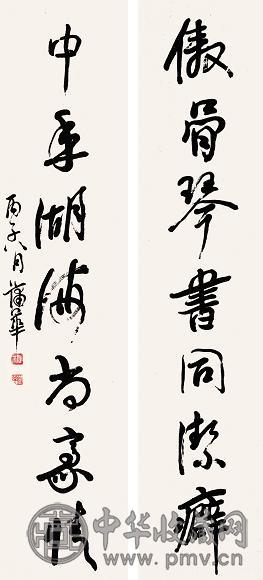 傲骨琴書同潔癖
中年湖海尚豪情
丙子八月蒲華
中华收藏网
www.pmv.cn